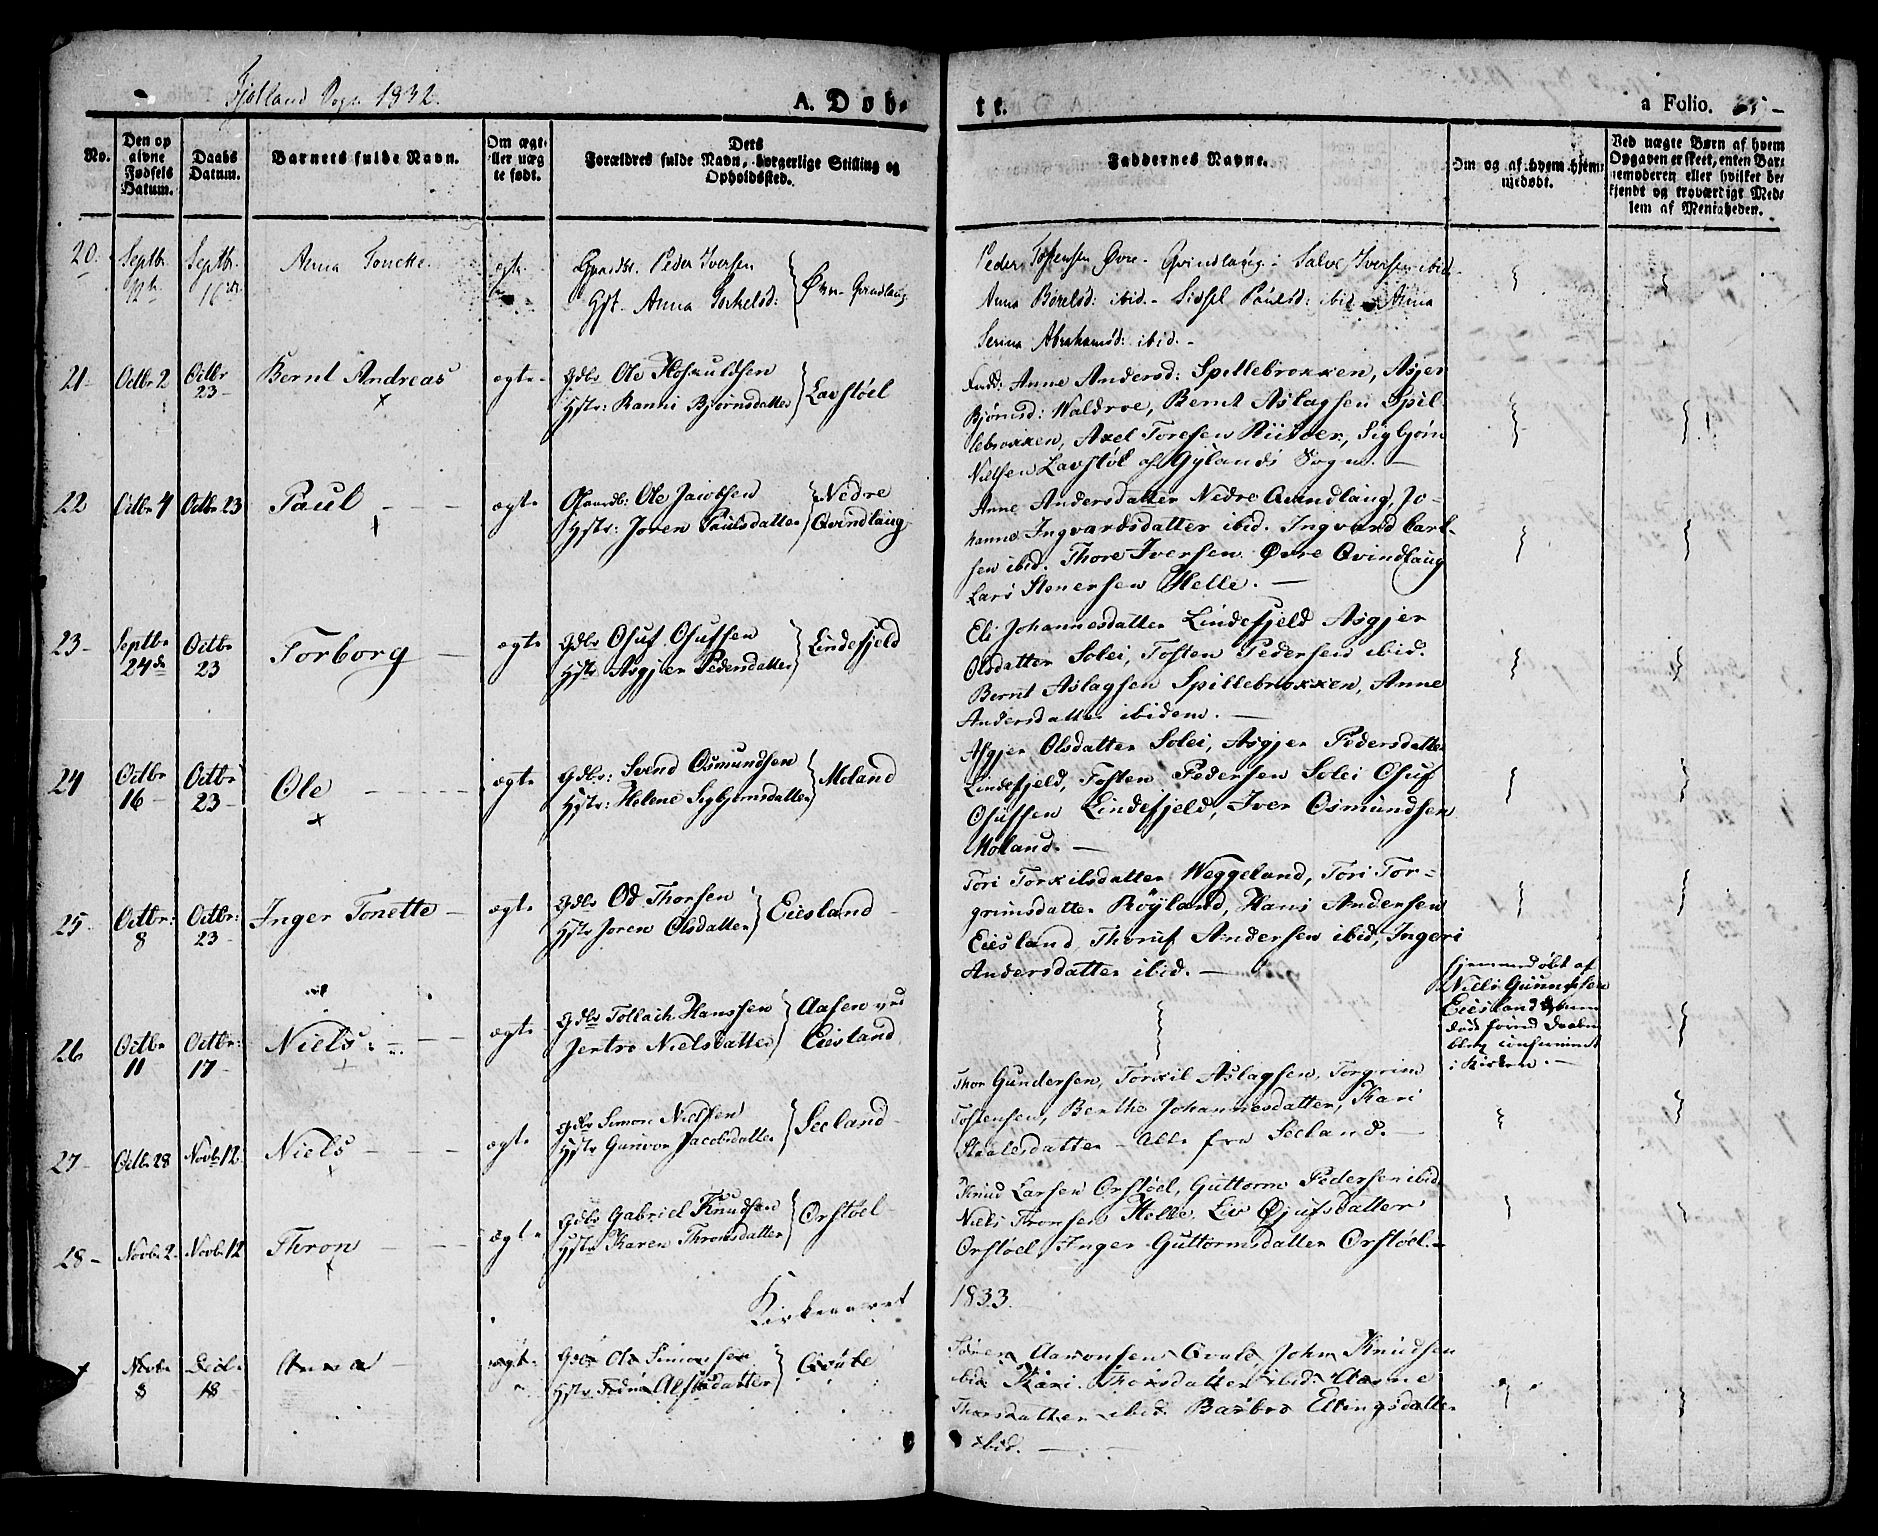 Fjotland Sogn 1832.
A. Døb-
tt.
a Folio. 65-
No.
Den op
givne
Fødsels
Datum.
Daabs
Datum.
Barnets fulde Navn.
Om ægt-
eller uæg
te født.
Dets
Forældres fulde Navn, borgerlige Stilling og
Opholdssted.
Faddernes Navne.
Om og af hvem hjem-
medøbt.
Ved uægte Børn af hvem
Opgaven er skeet, enten Bar-
nemoderen eller hvilket be-
kjendt og troværdigt Med-
lem af Menigheden.
20.
Septbr.
12te
Septbr.
16de
Anna Tonette.
ægte
Gaardbr. Peder Iversen
Hst. Anna Torkelsd:
Øvre Qvindlaug
Peder Tostensen Øvre Qvindlaug - Salve Iversen ibid-
Anna Børelsd: ibid. - Sidsel Paulsd: ibid - Anna
Serina Abrahamsd: ibid. -
21-
Octbr 2
Octbr
23-
Bernt Andreas
ægte-
Gdbr Ole Hoskuldsen
Hstr: Ranni Bjørnsdatter
Lavstøel
Fadd: Anne Andersd: Spillebrokken, Asjer
Bjørnsd: Waldroe, Bernt Aslagsen Spil-
lebrokken, Axel Toresen, Sigbjørn
Nielsen Lavstøl af Gylands Sogn. -
22
Octbr 4
Octbr 23
Paul - - -
ægte
Gaardb: Ole Jacobsen
Hstr: Joren Paulsdatter
Nedre
Qvindlaug
Anne Andersdatter Nedre Qvindlaug, Jo-
hanne Ingvardsdatter ibid. Ingvard Carl-
sen ibid. Thore Iversen Øvre Qvindlaug
Lars Stenersen Helle. -
23-
Septbr
24de
Octbr
23
Torborg -
ægte
Gdbr Osuf Osufsen
Hstr Asgjer Pedersdatter
Lindefjeld
Eli Johannesdatter Lindefjeld Asgjer
Olsdatter Solei, Tosten Pedersen ibid.
Bernt Aslagsen Spillebrokken, Anne
Andersdatter ibidem. -
24
Octbr
16-
Octbr
23-
Ole - - - -
ægte
Gdbr: Svend Osmundsen
Hstr: Helene Sigbjørnsdatter
Moland
Asgjer Olsdatter Solei, Asgjer Pedersdatter
Lindefjeld, Tosten Pedersen Solei Osuf
Osufsen Lindefjeld, Iver Osmundsen
Moland. -
25-
Octbr:
8
Octbr:
23-
Inger Tonette -
ægte
Gdbr Od Thorsen
Hstr Joren Olsdatter
Eiesland -
Tori Torkilsdatter Weggeland, Tori Tor-
grimsdatter Röyland, Hans Andersen
Eiesland, Thoruf Andersen ibid, Ingeri
Andersdatter ibid. -
26
Octbr
11
Octbr:
17-
Niels: - -
ægte
Gdbr Tollach Hanssen
Jertro Nielsdatter
Aasen ved
Eiesland
hjemmedøbt af
Niels Gunnufsen
Eiesland
død førend Daaben
blev confirmeret
i Kirken. -
27-
Octbr 28
Novbr 12.
Niels - - -
ægte
Gdbr Simon Nielsen
Hstr Gunvor Jacobsdatter
Seeland -
Thor Gundersen, Torkil Aslagsen, Torgrim
Tostensen, Berthe Johannesdatter, Kari
Staalesdatter - Alle fra Seeland. -
28-
Novbr 2
Novbr 12
Thron - -
ægte
Gdbr Gabriel Knudsen
Hstr Karen Thronsdatter
Orstøel -
Knud Larsen Orstøel, Guttorm Pedersen ibid
Niels Tronsen Helle, Liv Øjufsdatter
Orstøel Inger Guttormsdatter Orstøel. -
Kirkeaaret
1833.
Novbr
8
Decbr
18
Anna -
ægte
Gdbr Ole Simonsen
Hstr
Qvale
Søren Aaronsen Qvale, John Knudsen
ibid Kari Thorsdatter ibid. Aasne
Thorsdatter ibid. Barbro Ellingsdatter
ibid. -